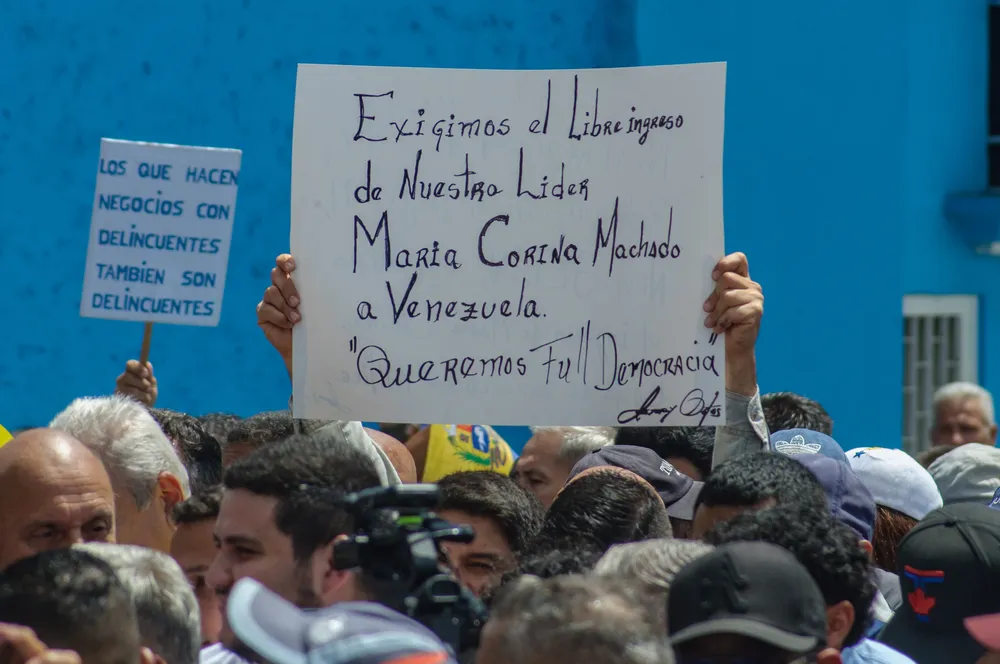 LOS QUE HACEN
NEGOCIOS CON
DELINCUENTES
TAMBIEN SON
DELINCUENTES
Exigimos el Libre ingreso
de Nuestra Lider
Maria Corina Machado
a Venezuela.
"Queremos Full Democracia"